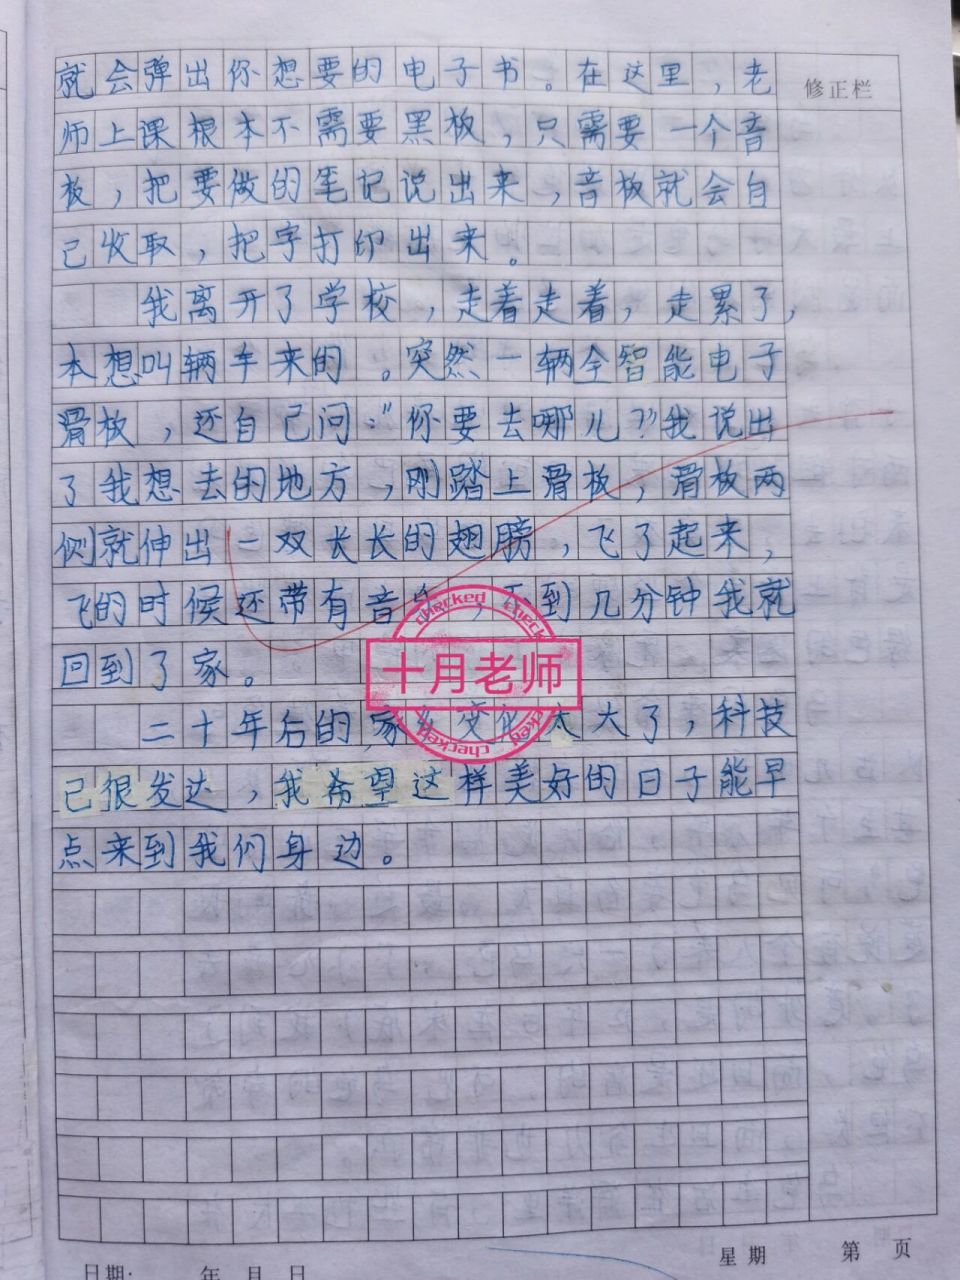 就会弹出你想要的电子书。在这里，老
修正栏
师上课根本不需要黑板，只需要一个音
板，把要做的笔记说出来，音板就会自
己收取，把字打印出来。
我离开了学校，走着走着，走累了，
本想叫辆车来的。突然一辆全智能电子
滑板，还自己问："你要去哪儿？"我说出
了我想去的地方，刚踏上滑板，滑板两
侧就伸出一双长长的翅膀，飞了起来，
飞的时候还带有音，不到几分钟我就
回到了家。
checked
十月老师
checked
二十年后的家乡变化太大了，科技
已很发达，我希望这样美好的日子能早
点来到我们身边。
日期： 年 月 日
星期 第 页